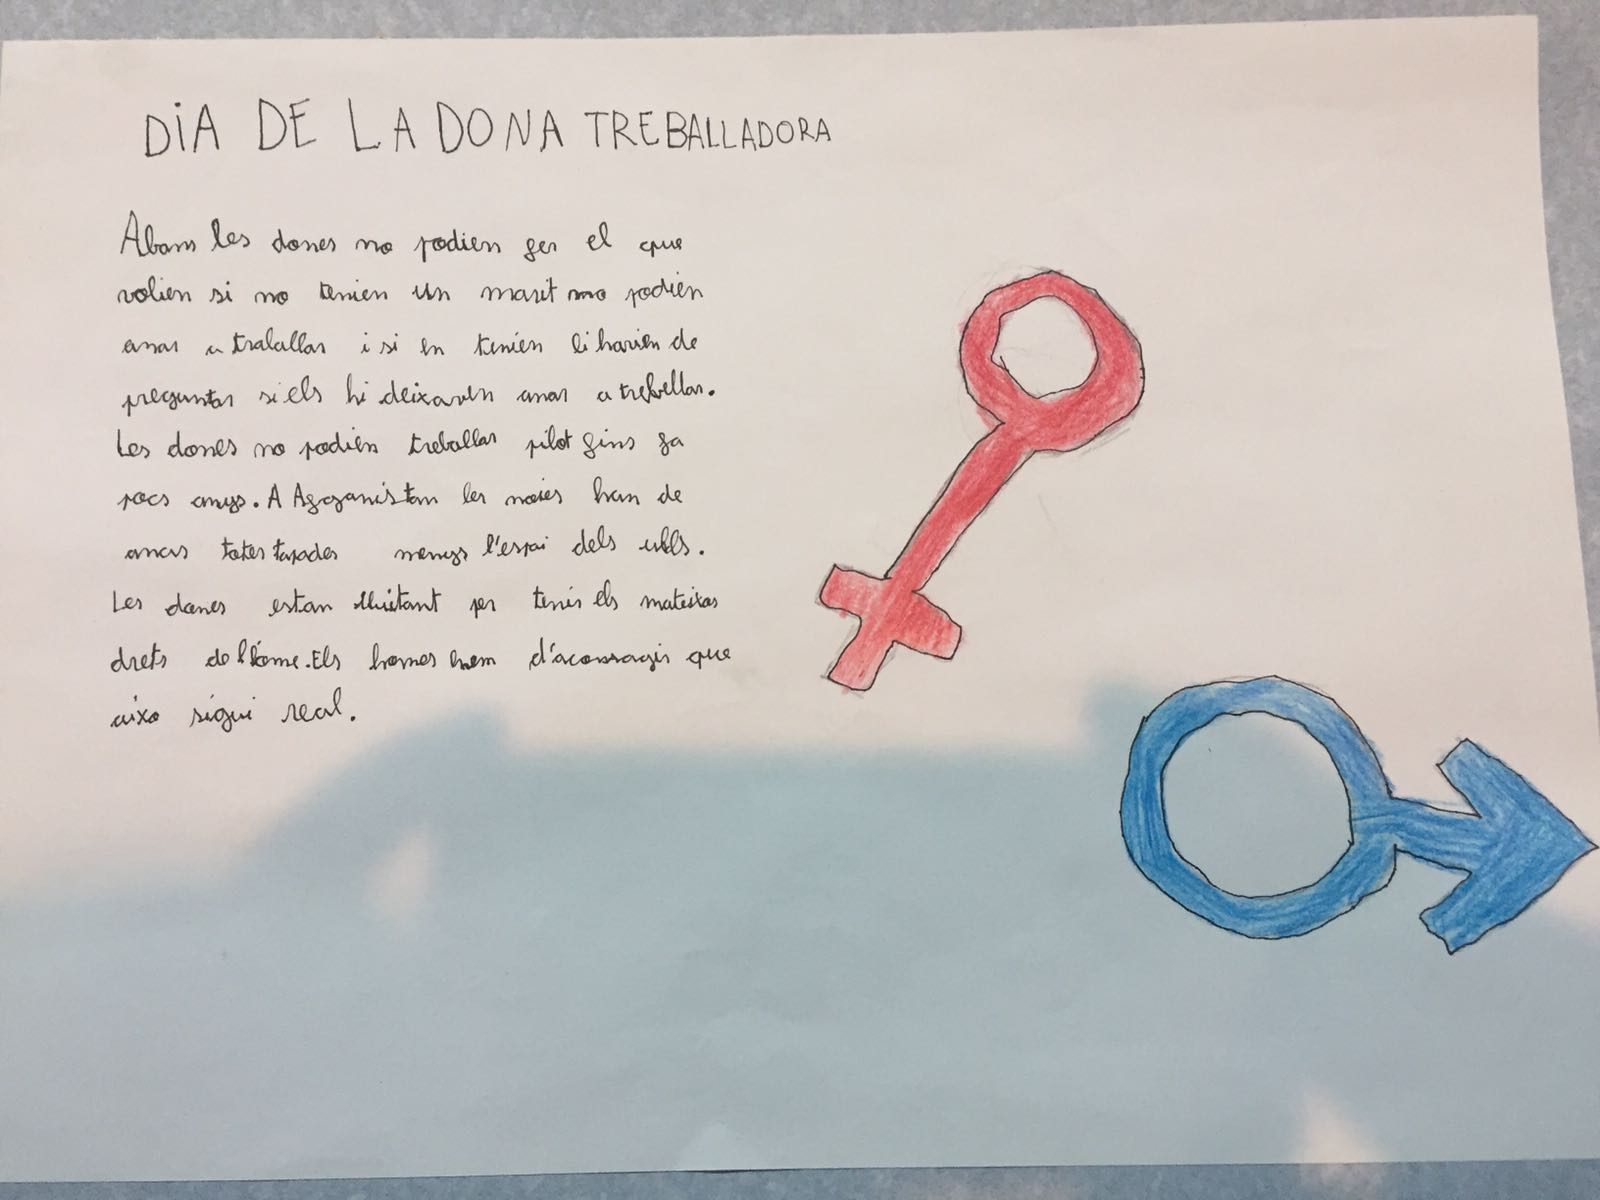 DiA DE LA DONA TREBALLADORA
Abans les dones no podien fer el que
volien si no tenien un marit no podien
anar a traballar i si en tenien li harien de
preguntar si els hi deixaven anar a treballar.
Les dones no podien treballar pilot fins fa
pocs anys. A Afganistan les noies han de
anar totes tapades menys l'espai dels ulls.
Les dones estan lluitant per tenir els mateixos
drets de l'home. Els homes hem d'aconsagir que
aixo sigui real.